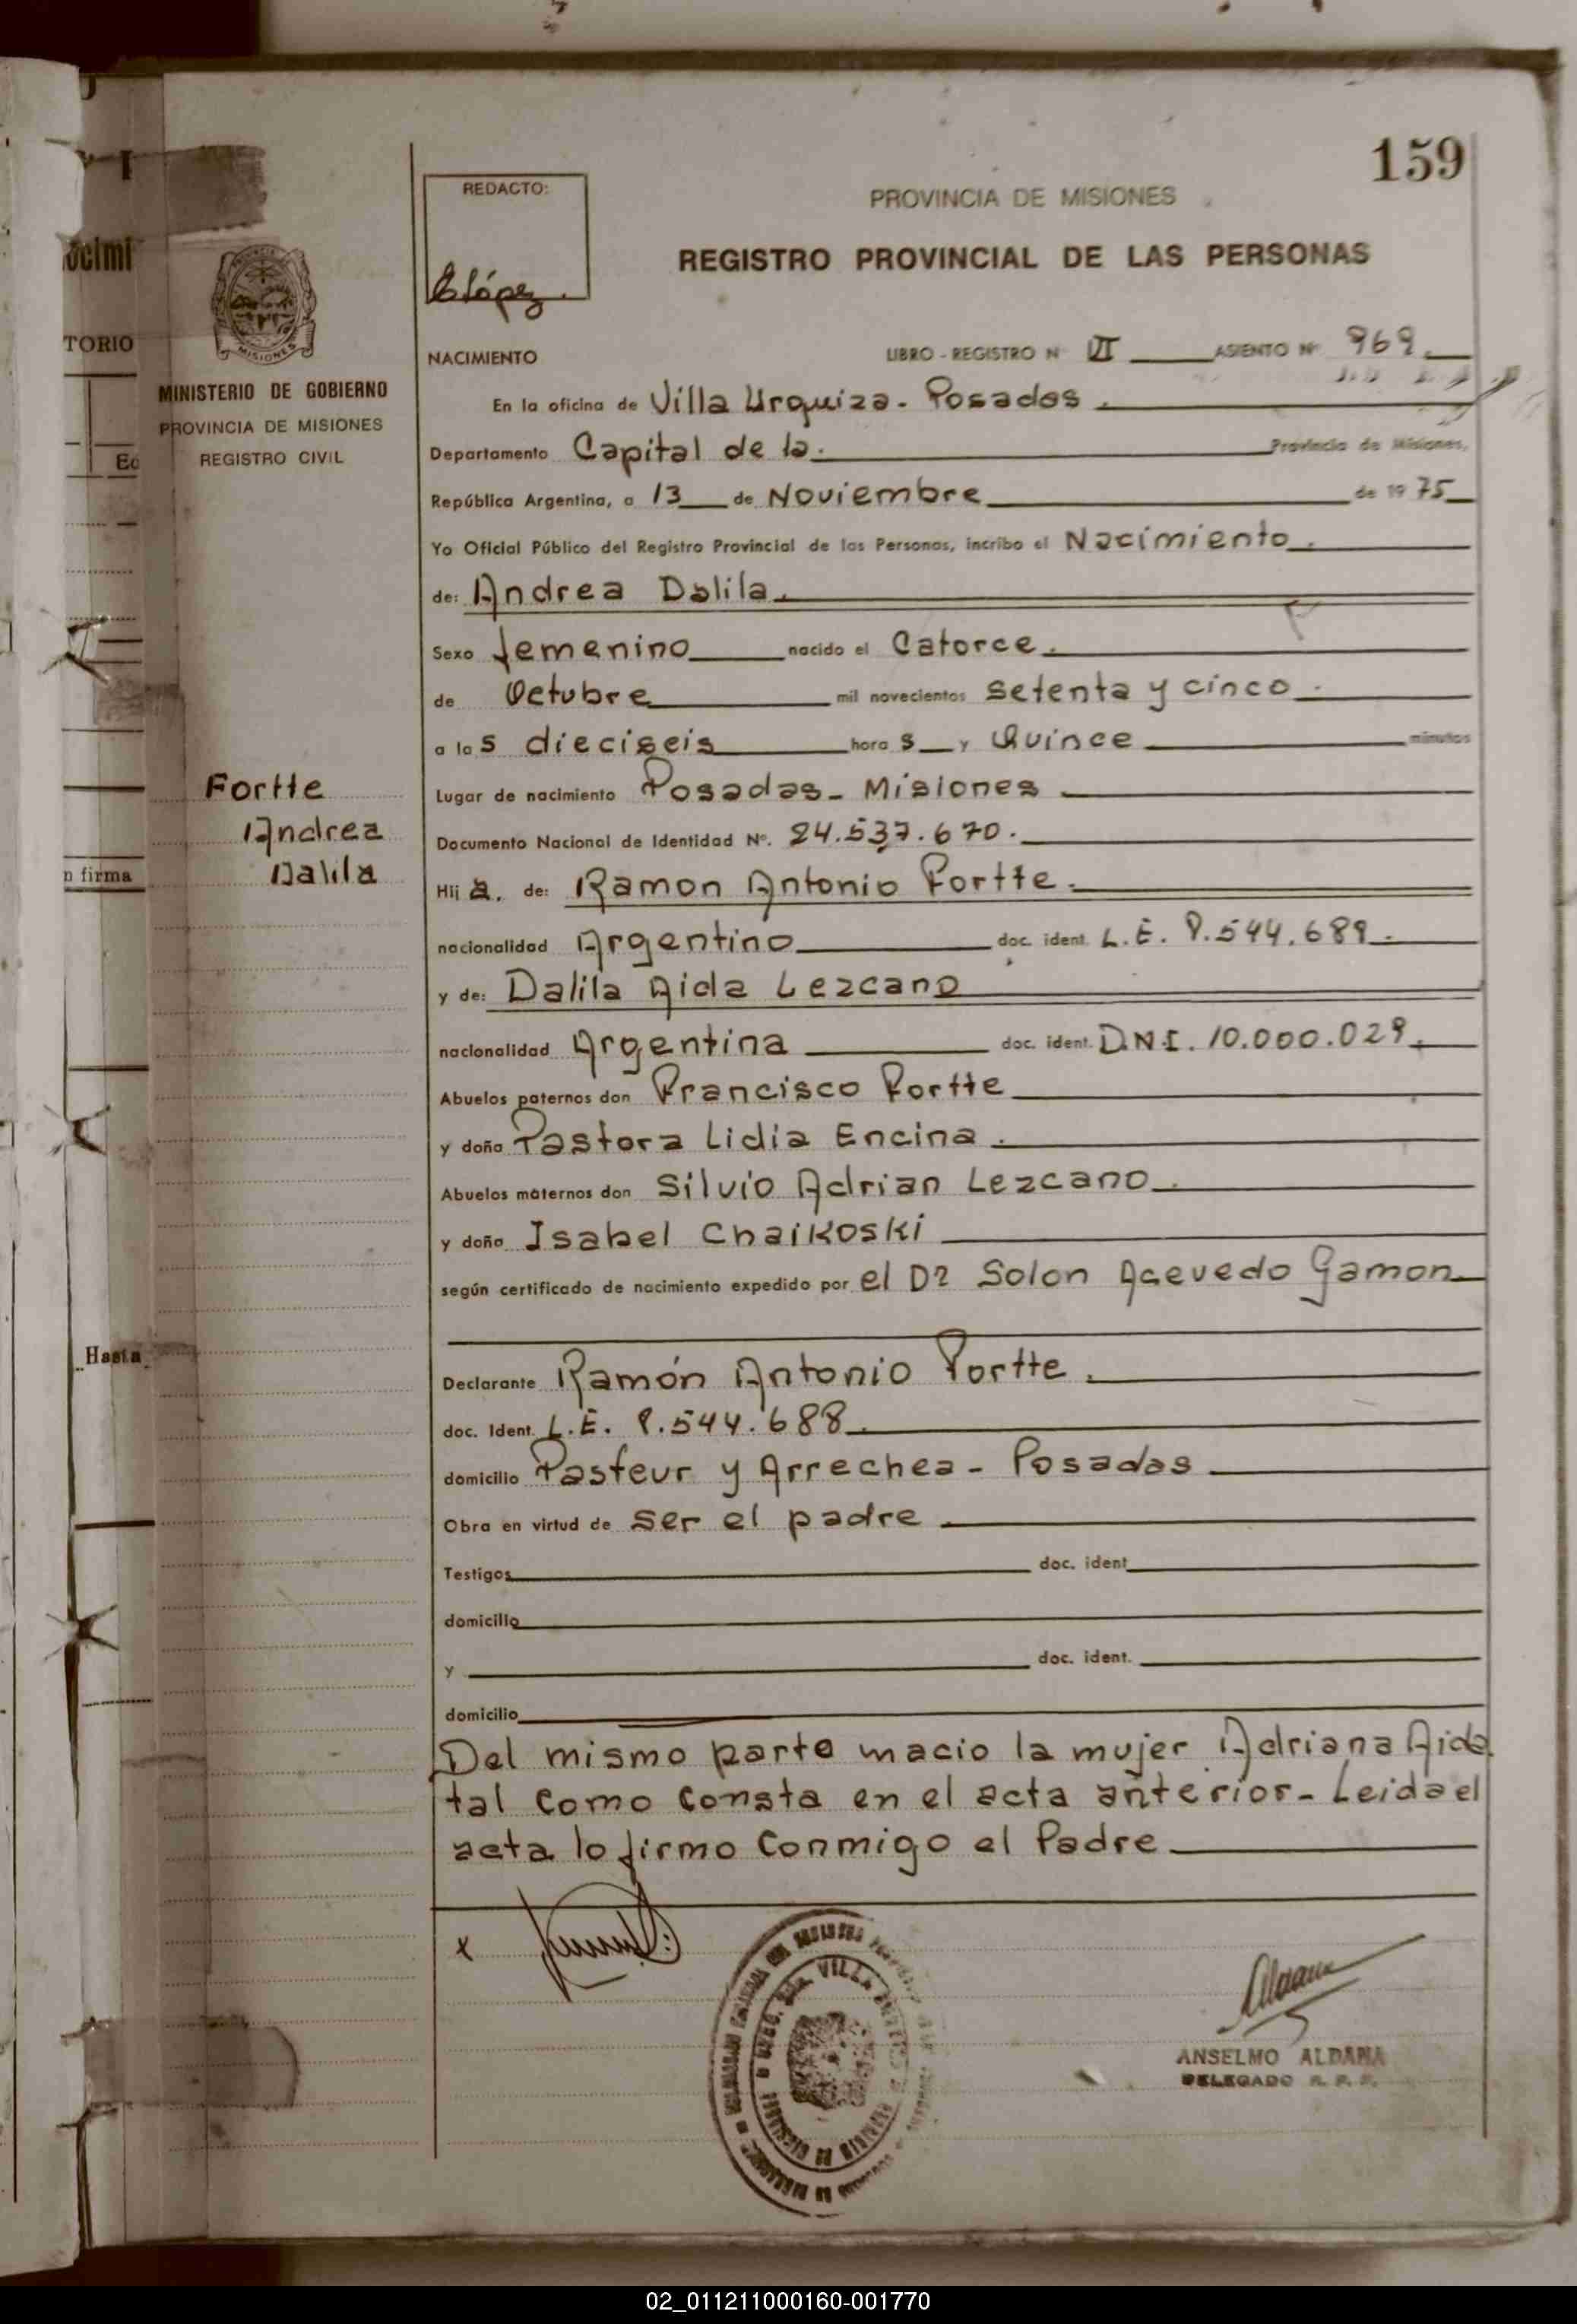 159
REDACTO:
PROVINCIA DE MISIONES
REGISTRO PROVINCIAL DE LAS PERSONAS
ELópez.
NACIMIENTO
LIBRO - REGISTRO N VI ASIENTO Nº 969
MINISTERIO DE GOBIERNO
PROVINCIA DE MISIONES
REGISTRO CIVIL
En la oficina de Villa Urquiza - Posadas.
Departamento Capital de la. Provincia de Misiones,
República Argentina, a 13 de Noviembre de 19 75
Yo Oficial Público del Registro Provincial de las Personas, incribo el Nacimiento.
de: Andrea Dalila.
Sexo femenino nacido el Catorce.
de Octubre mil novecientos setenta y cinco.
a las dieciseis horas y Quince minutos
Fortte
Andrea
Dalila
Lugar de nacimiento Posadas - Misiones
Documento Nacional de Identidad Nº. 24.537.670.
Hij a. de: Ramon Antonio Fortte.
nacionalidad Argentino doc. ident. L.E. 8.544.689.
y de: Dalila Aida Lezcano
nacionalidad Argentina doc. ident. D.N.I. 10.000.029.
Abuelos paternos don Francisco Fortte
y doña Pastora Lidia Encina.
Abuelos maternos don Silvio Adrian Lezcano.
y doña Isabel Chaikoski
según certificado de nacimiento expedido por el Dr Solon Acevedo Gamon
Declarante Ramón Antonio Fortte.
doc. Ident. L.E. 8.544.688.
domicilio Pasteur y Arrechea - Posadas
Obra en virtud de ser el padre
Testigos doc. ident.
domicilio
y doc. ident.
domicilio
Del mismo parto nacio la mujer Adriana Aida
tal como consta en el acta anterior - Leida el
acta lo firmo conmigo el Padre
x
VILLA
ANSELMO ALDANA
DELEGADO R. P. P.
TORIO
n firma
Hasta
02_011211000160-001770